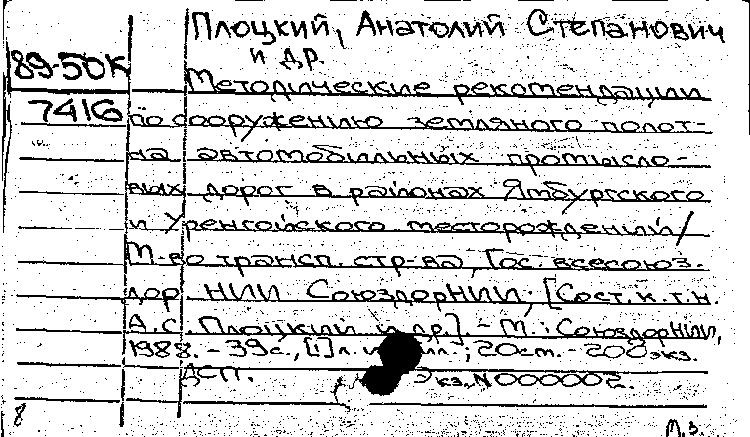 Плоцкий, Анатолий Степанович
и др.
89-50К
Методические рекомендации
7416
по сооружению земляного полот-
на автомобильных промысло-
вых дорог в районах Ямбургского
и Уренгойского месторождений/
М-во трансп. стр-ва, Гос. всесоюз.
дор. НИИ СоюздорНИИ; [Сост. к.т.н.
А.С. Плоцкий и др.]. - М.: СоюздорНИИ,
1988. - 39с., [1] л. ил.; 20см. - 200экз.
ДСП. Экз. N000002.
8
М.З.